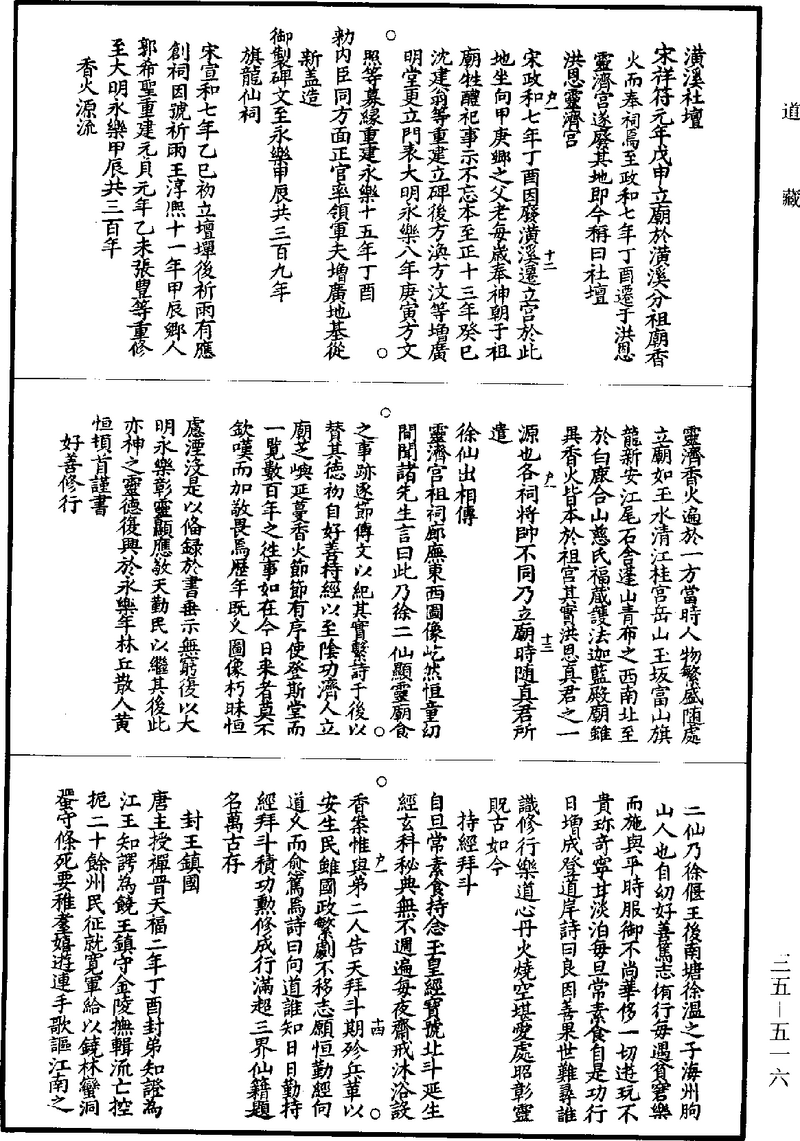 道藏
潢溪社壇
宋祥符元年戊申立廟於潢溪分祖廟香
火而奉祠焉至政和七年丁酉遷于洪恩
靈濟宮遂廢其地即今稱曰社壇
洪恩靈濟宮
宋政和七年丁酉因廢潢溪遷立宮於此
地坐向甲庚鄉之父老每歲奉神朝于祖
廟牲醴祀事示不忘本至正十三年癸巳
沈建翁等重建立碑後方渙方汶等增廣
明堂更立門表大明永樂八年庚寅方文
照等募緣重建永樂十五年丁酉
勑內臣同方面正官率領軍夫增廣地基從
新盖造
御製碑文至永樂甲辰共三百九年
旗龍仙祠
宋宣和七年乙巳初立壇墠後祈雨有應
創祠因號祈雨王淳熙十一年甲辰鄉人
郭希聖重建元貞元年乙未張豐等重修
至大明永樂甲辰共三百年
香火源流
靈濟香火遍於一方當時人物繁盛隨處
立廟如玉水清江桂宮岳山玉坂富山旗
龍新安江尾石舍逢山青布之西南北至
於白鹿合山慈氏福嚴護法迦藍殿廟雖
異香火皆本於祖宮其實洪恩真君之一
源也各祠將帥不同乃立廟時隨真君所
遣
徐仙出相傳
靈濟宮祖祠廊廡東西圖像屹然恒童幼
間聞諸先生言曰此乃徐二仙顯靈廟食
之事跡逐節傳文以紀其實繫詩于後以
替其德初自好善持經以至陰功濟人立
廟芝嶼延蔓香火節節有序使登斯堂而
一覧數百年之徃事如在今日来者莫不
欽嘆而加敬畏焉歷年既乆圖像朽昧恒
慮湮没是以俻録於書垂示無窮復以大
明永樂彰靈顯應敬天勤民以繼其後此
亦神之靈德復興於永樂年林丘散人黄
恒頓首謹書
好善修行
二仙乃徐偃王後南塘徐溫之子海州朐
山人也自幼好善篤志脩行每遇貧窘樂
而施與平時服御不尚華侈一切遊玩不
貴珎竒寧甘淡泊每旦常素食自是功行
日增成登道岸詩曰良因善果世難尋誰
識修行樂道心丹火燒空堪愛處昭彰靈
貺古如今
持經拜斗
自旦常素食持念玉皇經寳號北斗延生
經玄科秘典無不週遍每夜齋戒沐浴設
香案惟與弟二人告天拜斗期殄兵革以
安生民雖國政繁劇不移志願恒勤經向
道乆而愈篤焉詩曰向道誰知日日勤持
經拜斗積功勲修成行滿超三界仙籍題
名萬古存
封王鎮國
唐主授禪晋天福二年丁酉封弟知證為
江王知諤為饒王鎮守金陵撫輯流亡控
扼二十餘州民征就寬軍給以鐃林蠻洞
蜑守條死要稚羣嬉遊連手歌謳江南之
三五—五一六
户一
十二
户一
十三
户一
十四